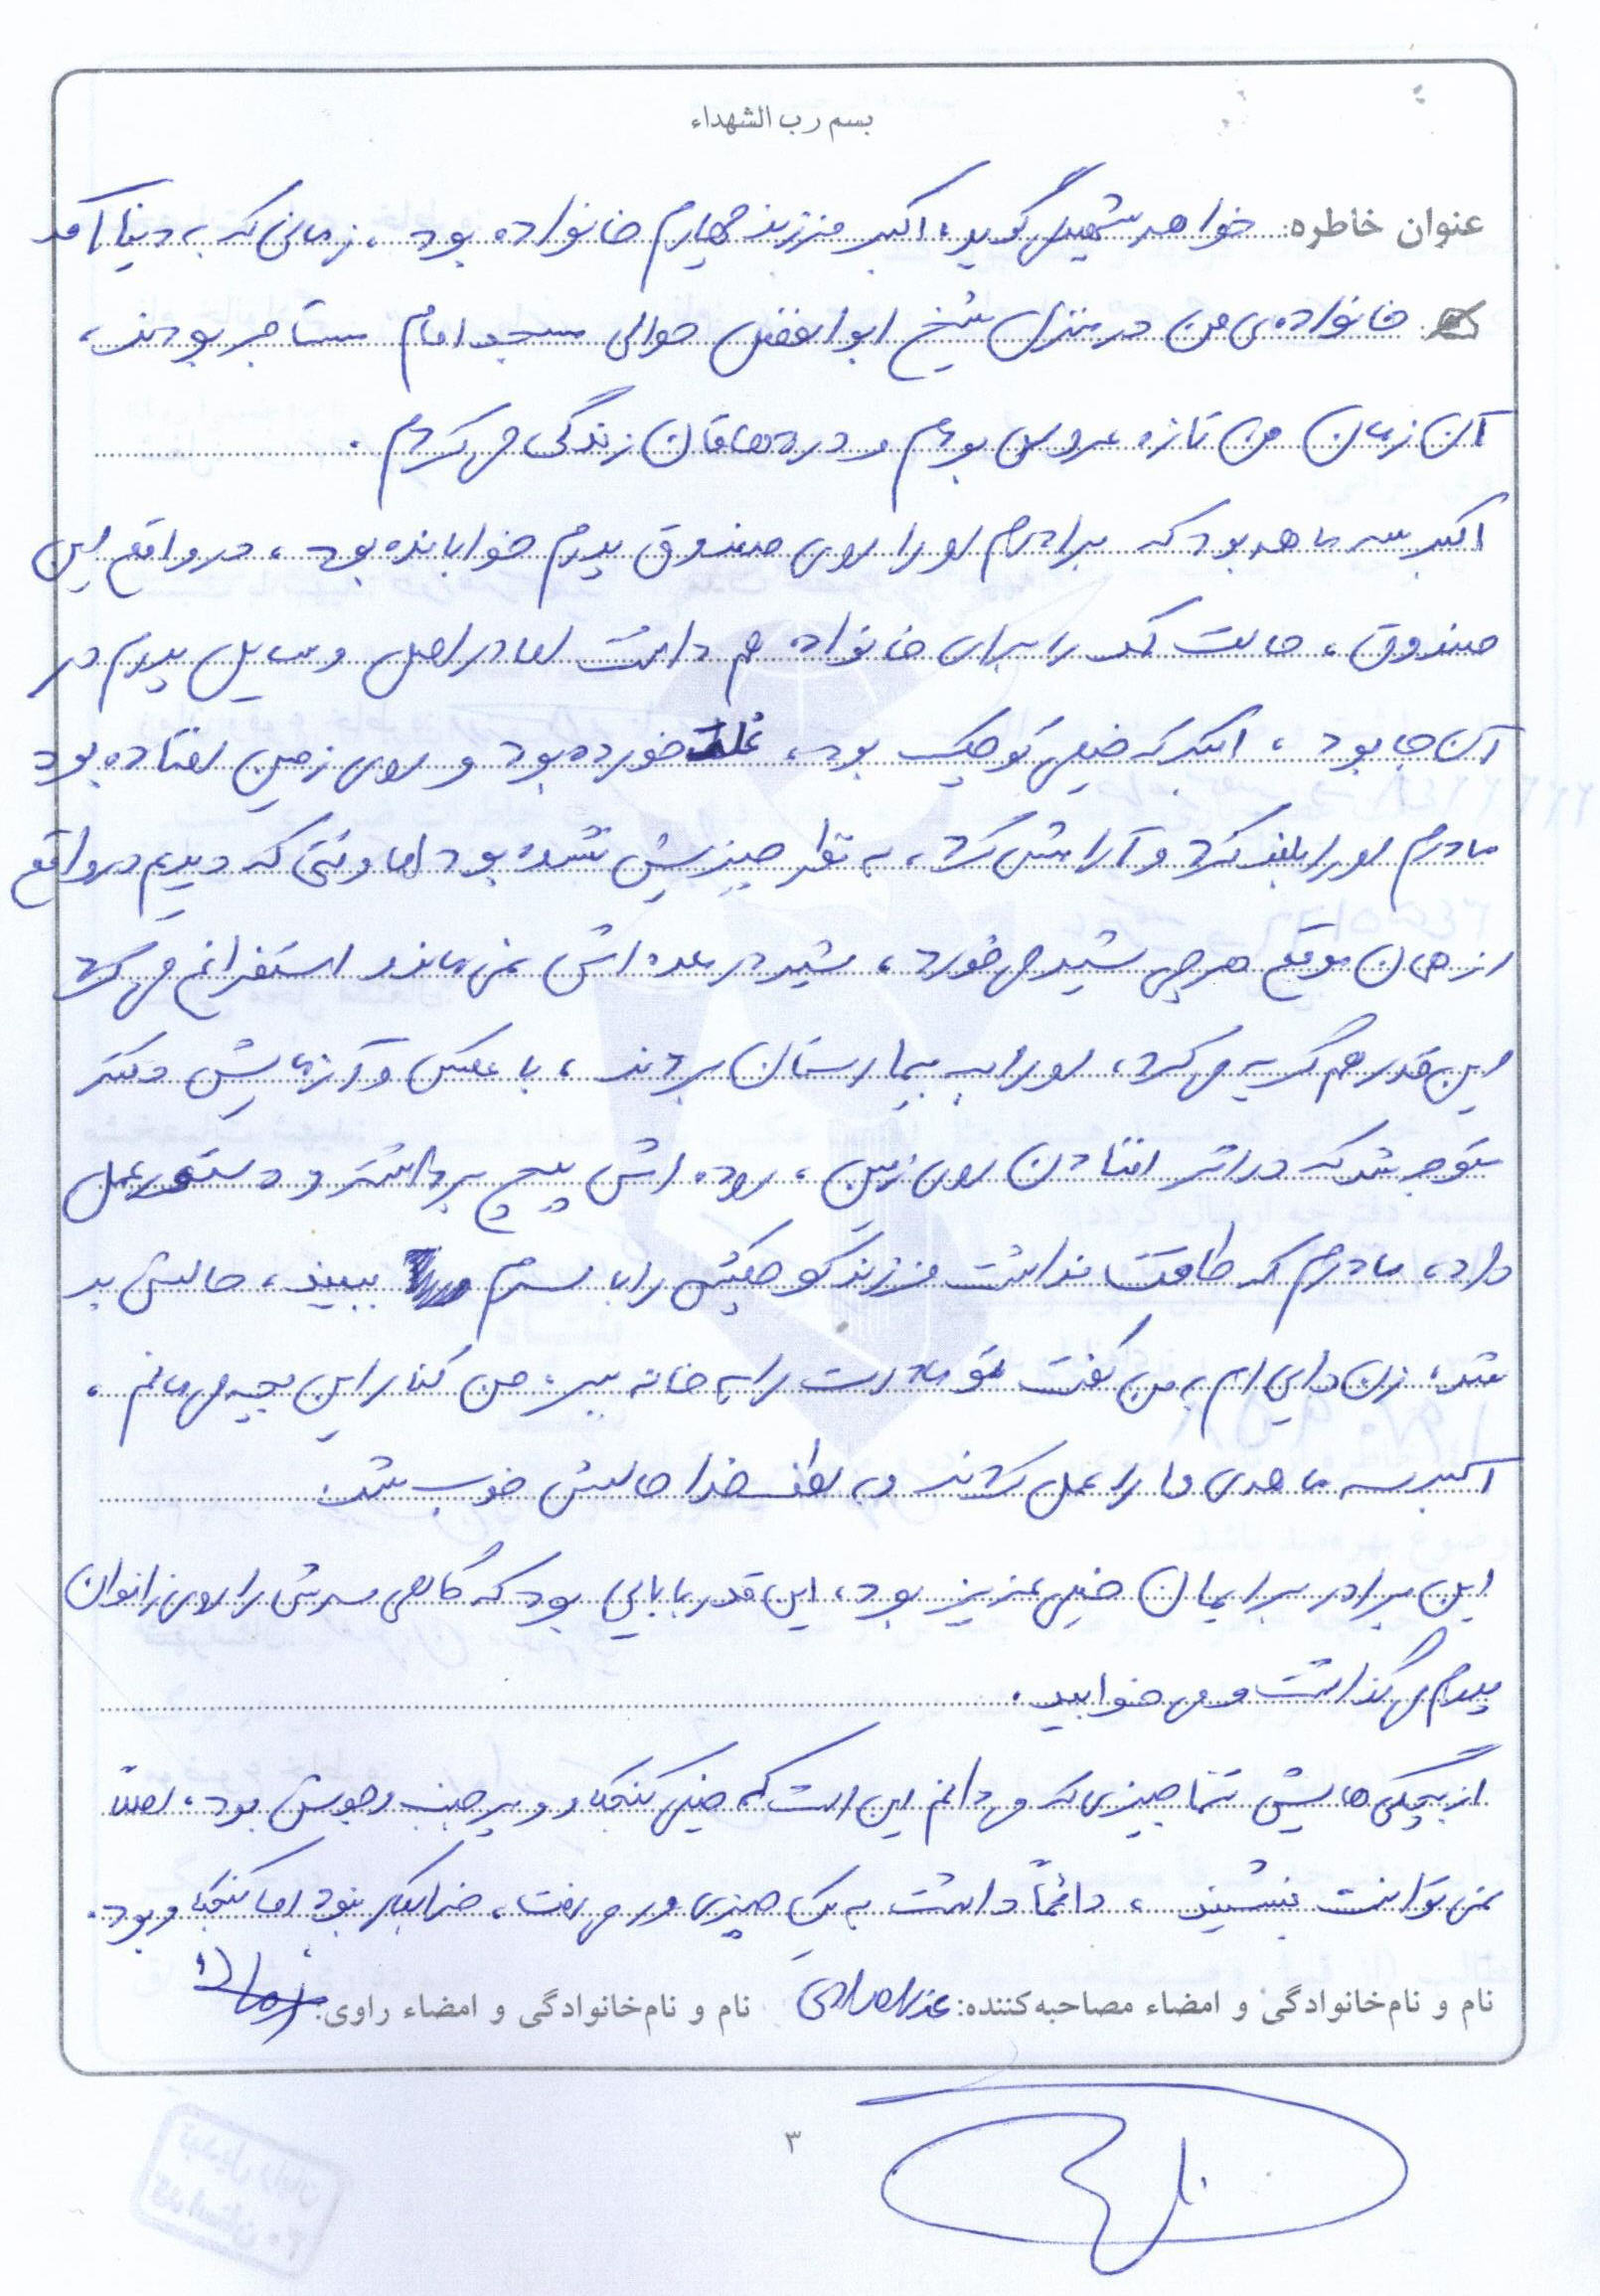 بسم رب الشهداء
عنوان خاطره: خواهر شهید می گوید، اکبر فرزند چهارم خانواده بود، زمانی که به دنیا آمد
خانواده ی من در منزل شیخ ابوالفضل حوالی مسجد امام مستاجر بودند،
آن زمان من تازه عروس بودم و در دهاقان زندگی می کردم.
اکبر سه ماهه بود که برادرم او را روی صندوق پدرم خوابانده بود، در واقع این
صندوق، حالت کمد را برای خانواده هم داشت اما در اصل وسایل پدرم در
آن جا بود، اکبر که خیلی کوچک بود، غلت خورده بود و روی زمین افتاده بود
مادرم او را بلند کرد و آرامش کرد، به نظر چیزیش نشده بود اما وقتی که دیدیم در واقع
از همان موقع هر چی شیر می خورد، شیر در معده اش نمی ماند و استفراغ می کرد
این قدر هم گریه می کرد، او را به بیمارستان بردند، با عکس و آزمایش دکتر
متوجه شد که در اثر افتادن روی زمین، روده اش پیچ برداشته و دستور عمل
داد، مادرم که طاقت نداشت فرزند کوچکش را با سرم ببیند، حالش بد
شد، زن دایی ام به من گفت تو مادرت را به خانه ببر، من کنار این بچه می مانم،
اکبر سه ماهه ی ما را عمل کردند و به لطف خدا حالش خوب شد.
این برادر برایمان خیلی عزیز بود، این قدر بابایی بود که گاهی سرش را روی زانوان
پدرم می گذاشت و می خوابید.
از بچگی هایش تنها چیزی که می دانم این است که خیلی کنجکاو و پر جنب و جوش بود، اصلاً
نمی توانست بنشیند، دائماً داشت به یک چیزی ور می رفت، خرابکار نبود اما کنجکاو بود.
نام و نام خانوادگی و امضاء مصاحبه کننده: نام و نام خانوادگی و امضاء راوی:
۳